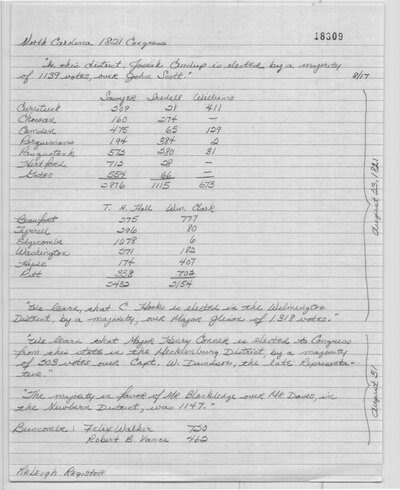 North Carolina 1821 Congress
18309
"In this district Josiah Crudup is elected by a majority
of 1139 votes, over John Scott."
8/17
Sawyer Iredell Williams
Currituck 209 21 411
Chowan 160 274 —
Camden 475 65 129
Perquimans 194 384 2
Pasquotank 572 280 31
Hertford 712 28 —
Gates 554 66 —
2876 1115 573
T. H. Hall Wm. Clark
Beaufort 275 777
Tyrrell 296 80
Edgecombe 1078 6
Washington 271 182
Hyde 174 407
Pitt 338 702
2432 2154
August 23, 1821
"We learn, that C Hooks is elected in the Wilmington
District, by a majority, over Major Gleason of 1318 votes."
"We learn that Major Henry Conner is elected to Congress
from this state in the Mecklenburg District, by a majority
of 303 votes over Capt. W. Davidson, the late Representa-
tive."
"The majority in favor of Mr Blackledge over Mr Daves, in
the Newbern District, was 1147."
Buncombe: Felix Walker 720
Robert B. Vance 462
August 31
Raleigh Register